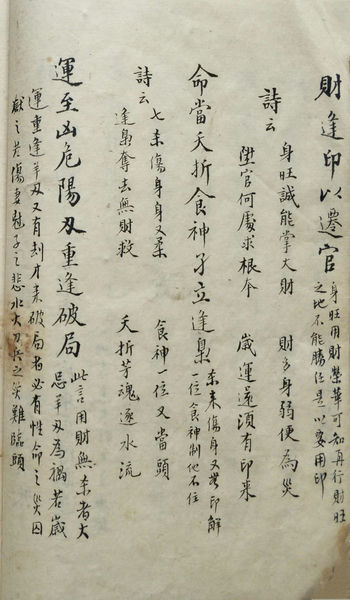 財逢印以遷官
身旺用財榮華可知再行財旺
之地不能勝任是以要用印
詩云 身旺誠能掌大財 財多身弱便為災
陞官何處求根本 歲運還須有印來
命當夭折食神孑立逢梟
杀來傷身又無印解
一位食神制他不住
詩云 七杀傷身身又柔 食神一位又當頭
逢梟奪去無財救 夭折芋魂逐水流
運至凶危陽刃重逢破局
此言用財無杀者大
忌羊刃為禍若歲
運重逢羊刃又有刦才來破局者必有性命之災因
之若傷妻尅子之悲水火刀兵之災難臨頭